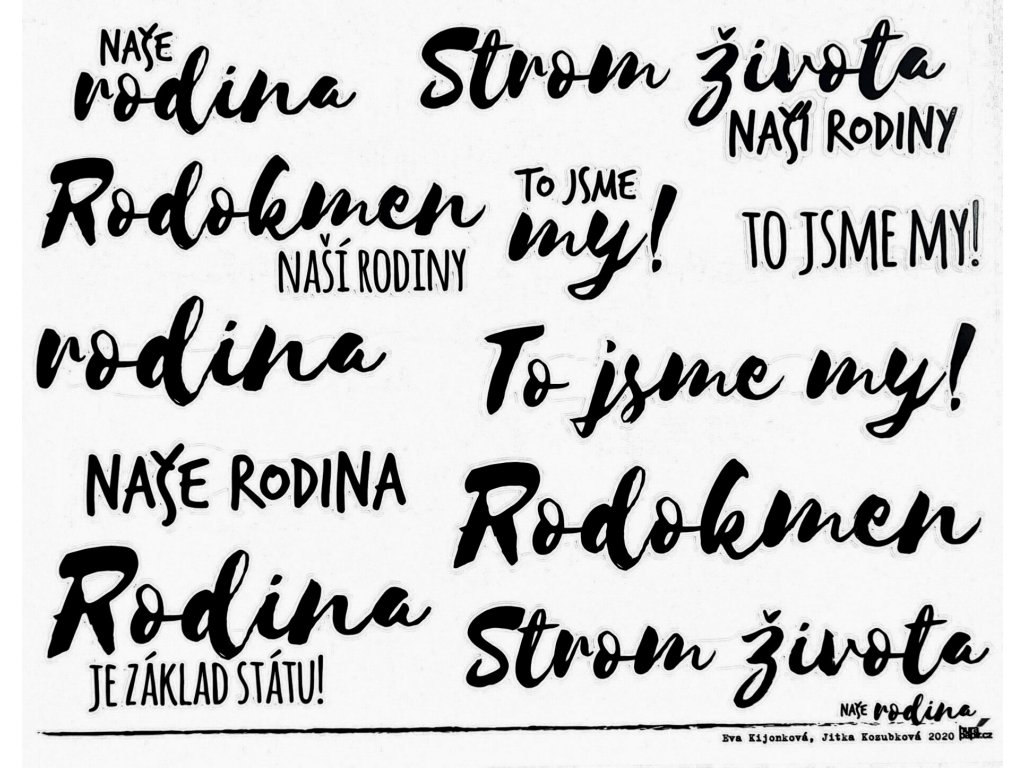 NAŠE
rodina
Strom života
NAŠÍ RODINY
Rodokmen
NAŠÍ RODINY
TO JSME
my!
TO JSME MY!
rodina
To jsme my!
NAŠE RODINA
Rodokmen
Rodina
JE ZÁKLAD STÁTU!
Strom života
NAŠE rodina
Eva Kijonková, Jitka Kozubková 2020